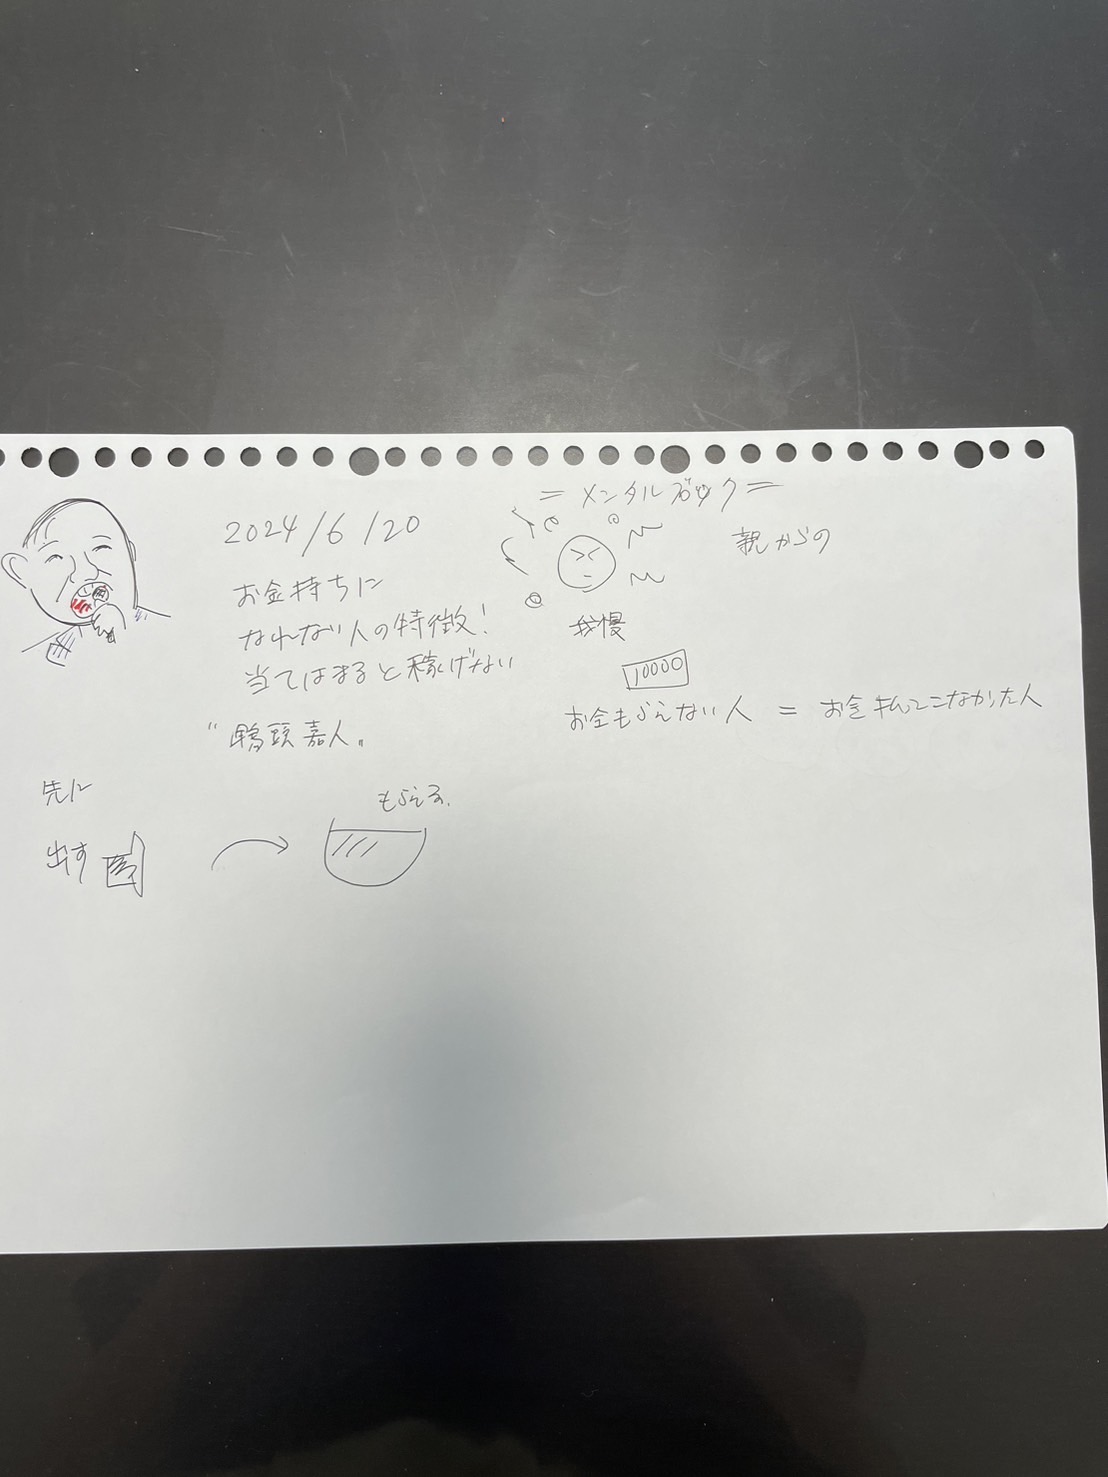 2024/6/20
お金持ちに
なれない人の特徴!
当てはまると稼げない
"鴨頭嘉人"
先に
出す
もらえる.
=メンタルブロック=
親からの
我慢
10000
お金もらえない人 = お金払ってこなかった人